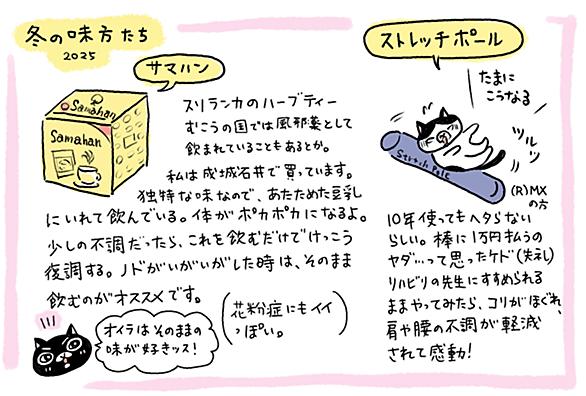 冬の味方たち
2025
サマハン
Samahan
Samahan
スリランカのハーブティー
むこうの国では風邪薬として
飲まれていることもあるとか。
私は成城石井で買っています。
独特な味なので、あたためた豆乳
にいれて飲んでいる。体がポカポカになるよ。
少しの不調だったら、これを飲むだけでけっこう
復調する。ノドがいがいがした時は、そのまま
飲むのがオススメです。
オイラはそのままの
味が好きッス!
(花粉症にもイイ
っぽい。)
ストレッチポール
たまに
こうなる
ツルッ
Stretch Pole
(R)MX
の方
10年使ってもヘタらない
らしい。棒に1万円払うの
ヤダ…って思ったケド(失礼)
リハビリの先生にすすめられる
ままやってみたら、コリがほぐれ、
肩や腰の不調が軽減
されて感動!